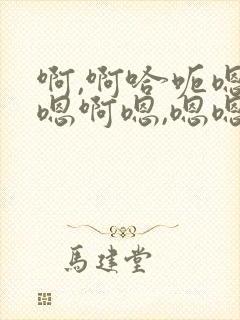 啊,啊哈呃嗯
嗯啊嗯,嗯嗯
馬建堂